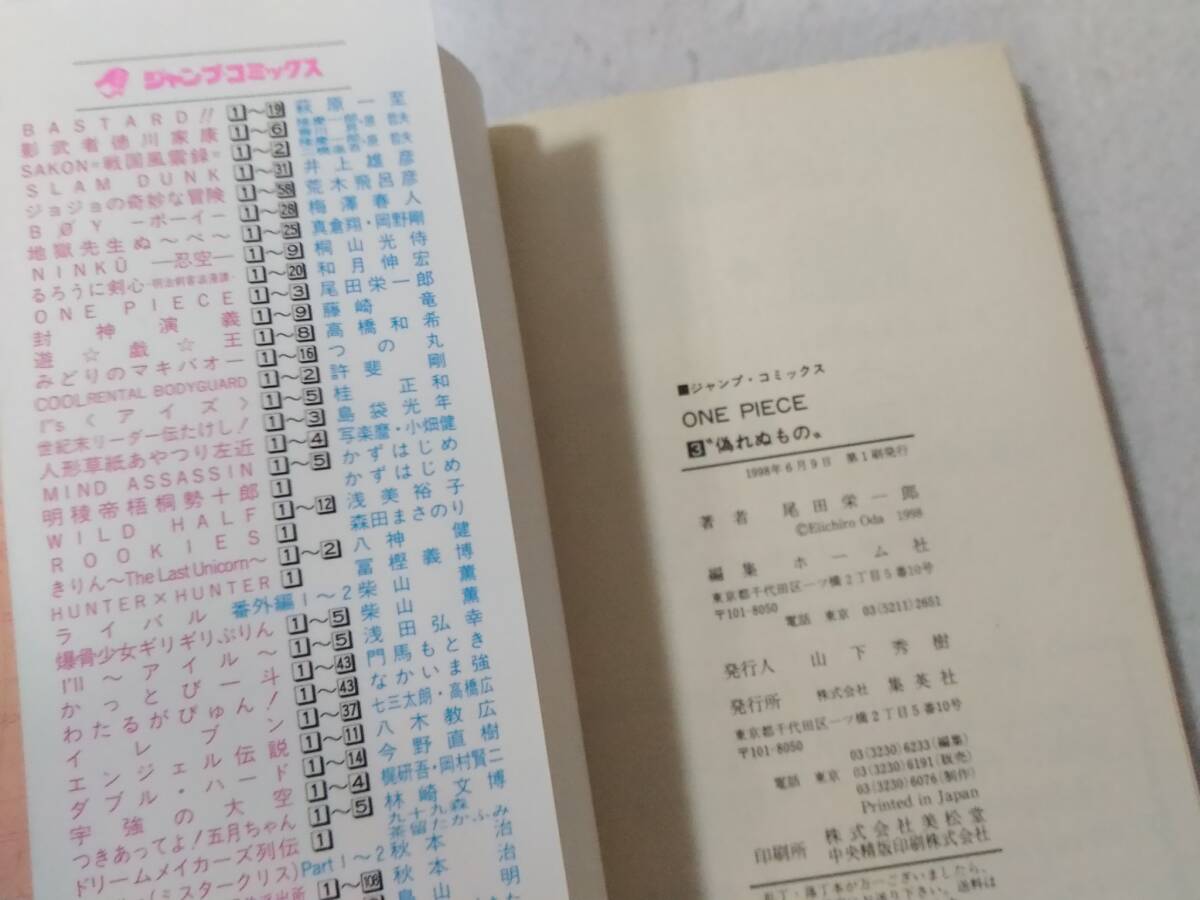 ジャンプコミックス
BASTARD!! 1～19 萩原一至
影武者徳川家康 1～6 隆慶一郎・原哲夫
SAKON-戦国風雲録- 1～2 隆慶一郎・原哲夫
SLAM DUNK 1～31 井上雄彦
ジョジョの奇妙な冒険 1～58 荒木飛呂彦
BØY －ボーイ－ 1～28 梅澤春人
地獄先生ぬ～べ～ 1～25 真倉翔・岡野剛
NINKŪ ―忍空― 1～9 桐山光侍
るろうに剣心-明治剣客浪漫譚- 1～20 和月伸宏
ONE PIECE 1～3 尾田栄一郎
封神演義 1～9 藤崎竜
遊☆戯☆王 1～8 高橋和希
みどりのマキバオー 1～16 つの丸
COOL RENTAL BODYGUARD 1～2 許斐剛
I"s〈アイズ〉 1～5 桂正和
世紀末リーダー伝たけし! 1～3 島袋光年
人形草紙あやつり左近 1～4 写楽麿・小畑健
MIND ASSASSIN 1～5 かずはじめ
明稜帝梧桐勢十郎 1 かずはじめ
WILD HALF 1～12 浅美裕子
ROOKIES 1 森田まさのり
きりん～The Last Unicorn～ 1～2 八神健
HUNTER×HUNTER 1 冨樫義博
ライバル 番外編1～2 柴山薫
爆骨少女ギリギリぷりん 1～5 柴山薫
I'll～アイル～ 1～5 浅田弘幸
かっとび一斗 1～43 門馬もとき
わたるがぴゅん! 1～43 なかいま強
イレブン 1～37 七三太朗・高橋広
エンジェル伝説 1～11 八木教広
ダブル・ハード 1～14 今野直樹
宇強の大空 1～4 梶研吾・岡村賢二
つきあってよ!五月ちゃん 1～5 林崎文博
ドリームメイカーズ列伝 1 九十九森 茶留たかふみ
(ミスタークリス) Part 1～2 秋本治
派出所 1～108 秋本治
鳥山明
■ジャンプ・コミックス
ONE PIECE
3〝偽れぬもの〟
1998年6月9日 第1刷発行
著者 尾田栄一郎
©Eiichiro Oda 1998
編集 ホーム社
東京都千代田区一ツ橋2丁目5番10号
〒101-8050
電話 東京 03(5211)2651
発行人 山下秀樹
発行所 株式会社 集英社
東京都千代田区一ツ橋2丁目5番10号
〒101-8050
03(3230)6233(編集)
電話 東京 03(3230)6191(販売)
03(3230)6076(制作)
Printed in Japan
株式会社美松堂
印刷所 中央精版印刷株式会社
乱丁・落丁本が万一ございましたら、
送料は